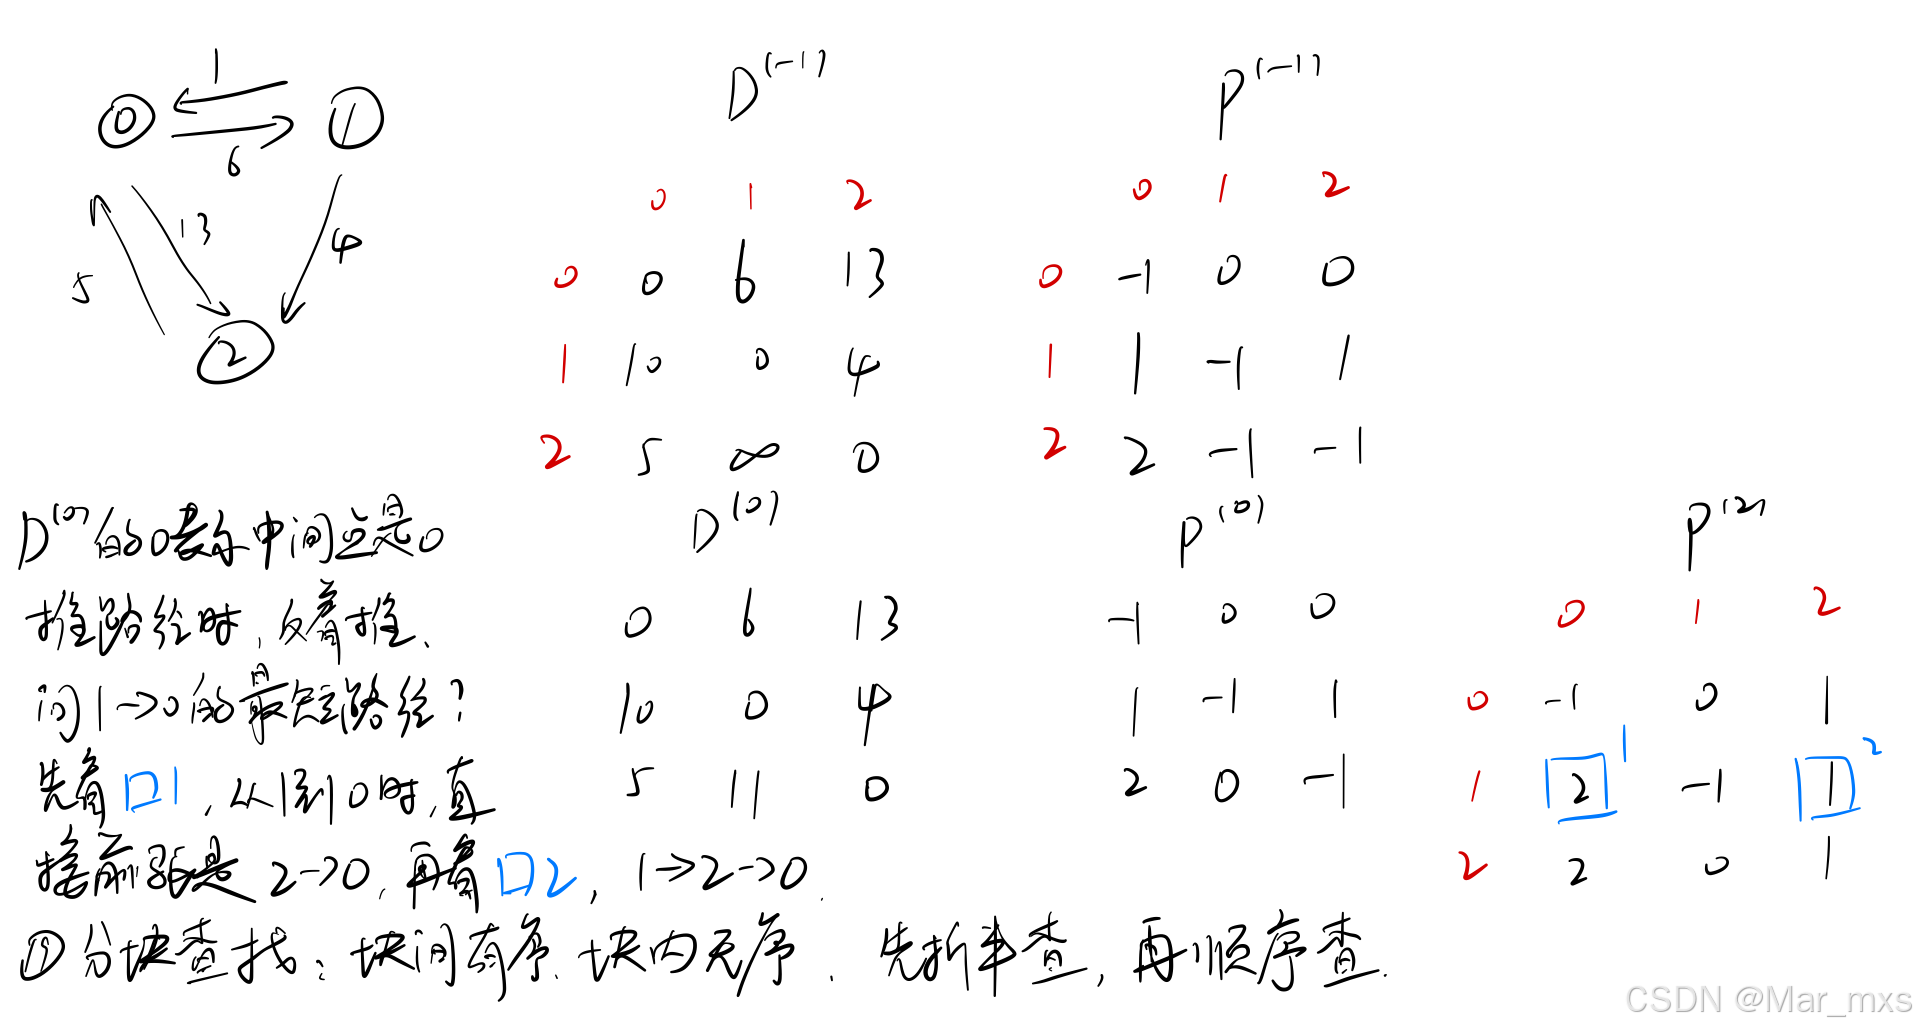 1
0 1
6
13
4
5
2
D(-1)
0 1 2
0 0 6 13
1 10 0 4
2 5 ∞ 0
P(-1)
0 1 2
0 -1 0 0
1 1 -1 1
2 2 -1 -1
D(0)的0表示中间点是0
推路径时,反着推.
问1->0的最短路径?
先看口1,从1到0时,直
接前驱是2->0,再看口2,1->2->0.
D(0)
0 6 13
10 0 4
5 11 0
P(0)
-1 0 0
1 -1 1
2 0 -1
P(2)
0 1 2
0 -1 0 1
1 2 1 -1 1 2
2 2 0 1
⑪分块查找:块间有序、块内无序.先折半查,再顺序查.
CSDN @Mar_mxs